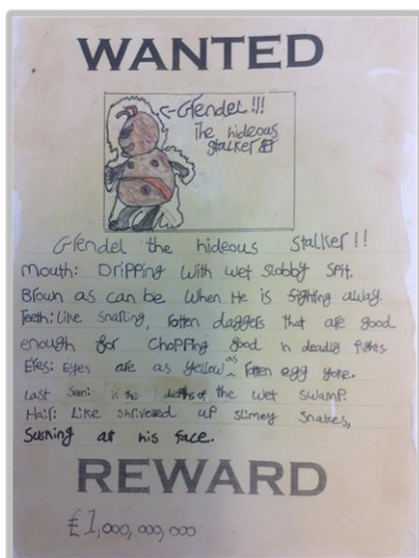 WANTED
<-Grendel!!!
The hideous
stalker
Grendel the hideous Stalker!!
Mouth: Dripping with wet slobby spit.
Brown as can be when He is fighting away.
Teeth: Like snarling, rotten daggers that are good
enough for chopping good in deadly fights.
Eyes: Eyes are as yellow as rotten egg yoke.
Last Seen: in the depths of the wet swamp.
Hair: Like shrivelled up slimey snakes,
Sucking at his face.
REWARD
£1,000,000,000